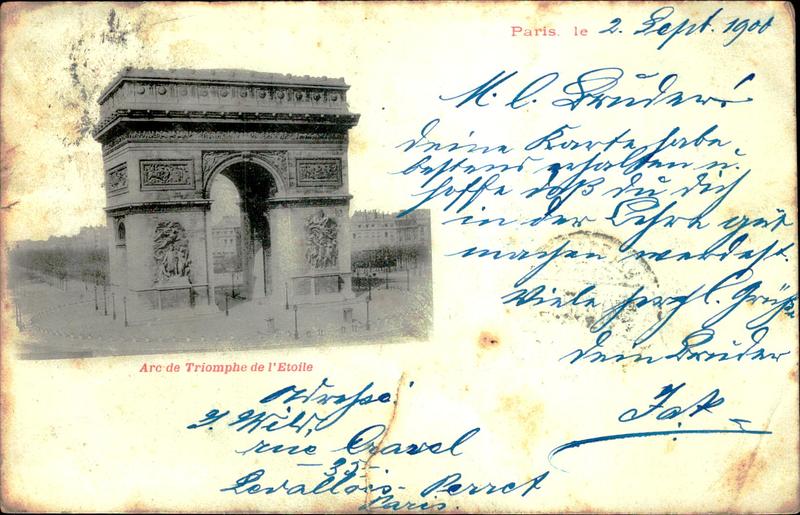 Paris, le 2. Sept. 1900
M. l. Bruder!
deine Karte habe
bestens erhalten u.
hoffe daß du dich
in der Lehre gut
machen werdest.
Viele herzl. Grüße
dein Bruder
Jak
Arc de Triomphe de l'Etoile
Adresse:
Y. Wild,
rue Gravel
35
Levallois-Perret
Paris.